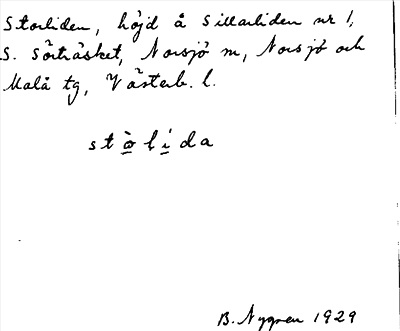 Storliden, höjd å Sillarliden nr 1,
S. Sörträsket, Norsjö m, Norsjö och
Malå tg, Västerb. l.
stòlida
B. Nygren 1929